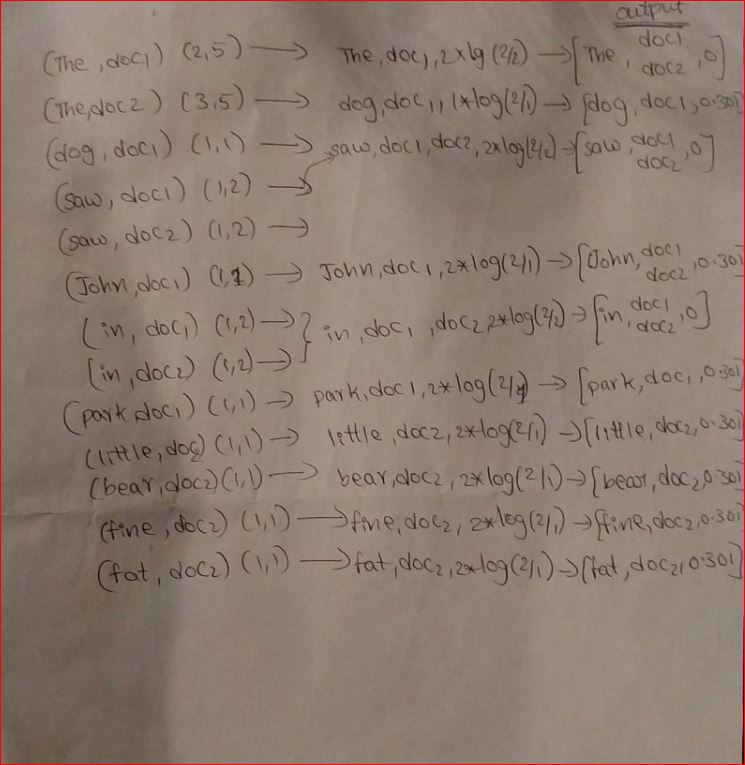 output
(The, doc1) (2,5) → The, doc1, 2*lg(2/2) → [The, doc1 doc2, 0]
(The,doc2) (3,5) → dog, doc1, 1*log(2/1) → [dog, doc1, 0.301]
(dog, doc1) (1,1) → saw, doc1, doc2, 2*log(2/2) → [saw, doc1 doc2, 0]
(saw, doc1) (1,2) →
(saw, doc2) (1,2) →
(John, doc1) (1,1) → John, doc1, 2*log(2/1) → [John, doc1 doc2, 0.301]
(in, doc1) (1,2) → } in, doc1, doc2, 2*log(2/2) → [in, doc1 doc2, 0]
(in, doc2) (1,2) →
(park, doc1) (1,1) → park, doc1, 2*log(2/1) → [park, doc1, 0.301]
(little, doc2) (1,1) → little, doc2, 2*log(2/1) → [little, doc2, 0.301]
(bear, doc2) (1,1) → bear, doc2, 2*log(2/1) → [bear, doc2, 0.301]
(fine, doc2) (1,1) → fine, doc2, 2*log(2/1) → [fine, doc2, 0.301]
(fat, doc2) (1,1) → fat, doc2, 2*log(2/1) → [fat, doc2, 0.301]